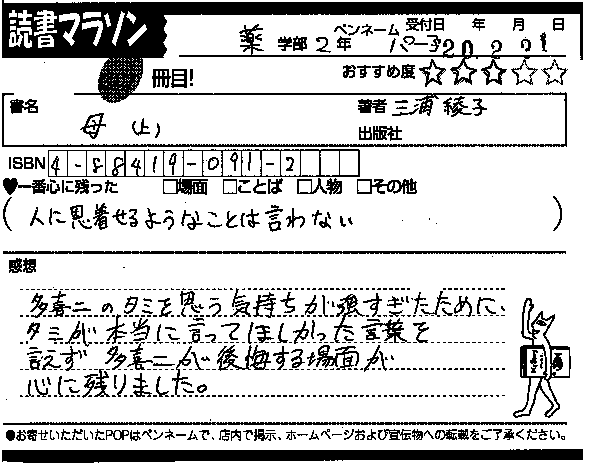 読書マラソン
薬 学部 2年 ペンネーム 受付日 年 月 日
冊目! おすすめ度 ☆☆☆☆☆
書名 母 (上) 著者 三浦綾子
出版社
ISBN 4-88419-091-2
♥一番心に残った □場面 □ことば □人物 □その他
(人に恩着せるようなことは言わない)
感想
多喜二のタミを思う気持ちが強すぎたために、
タミが本当に言ってほしかった言葉を
言えず 多喜二が後悔する場面が
心に残りました。
●お寄せいただいたPOPはペンネームで、店内で掲示、ホームページおよび宣伝物への転載をご了承ください。